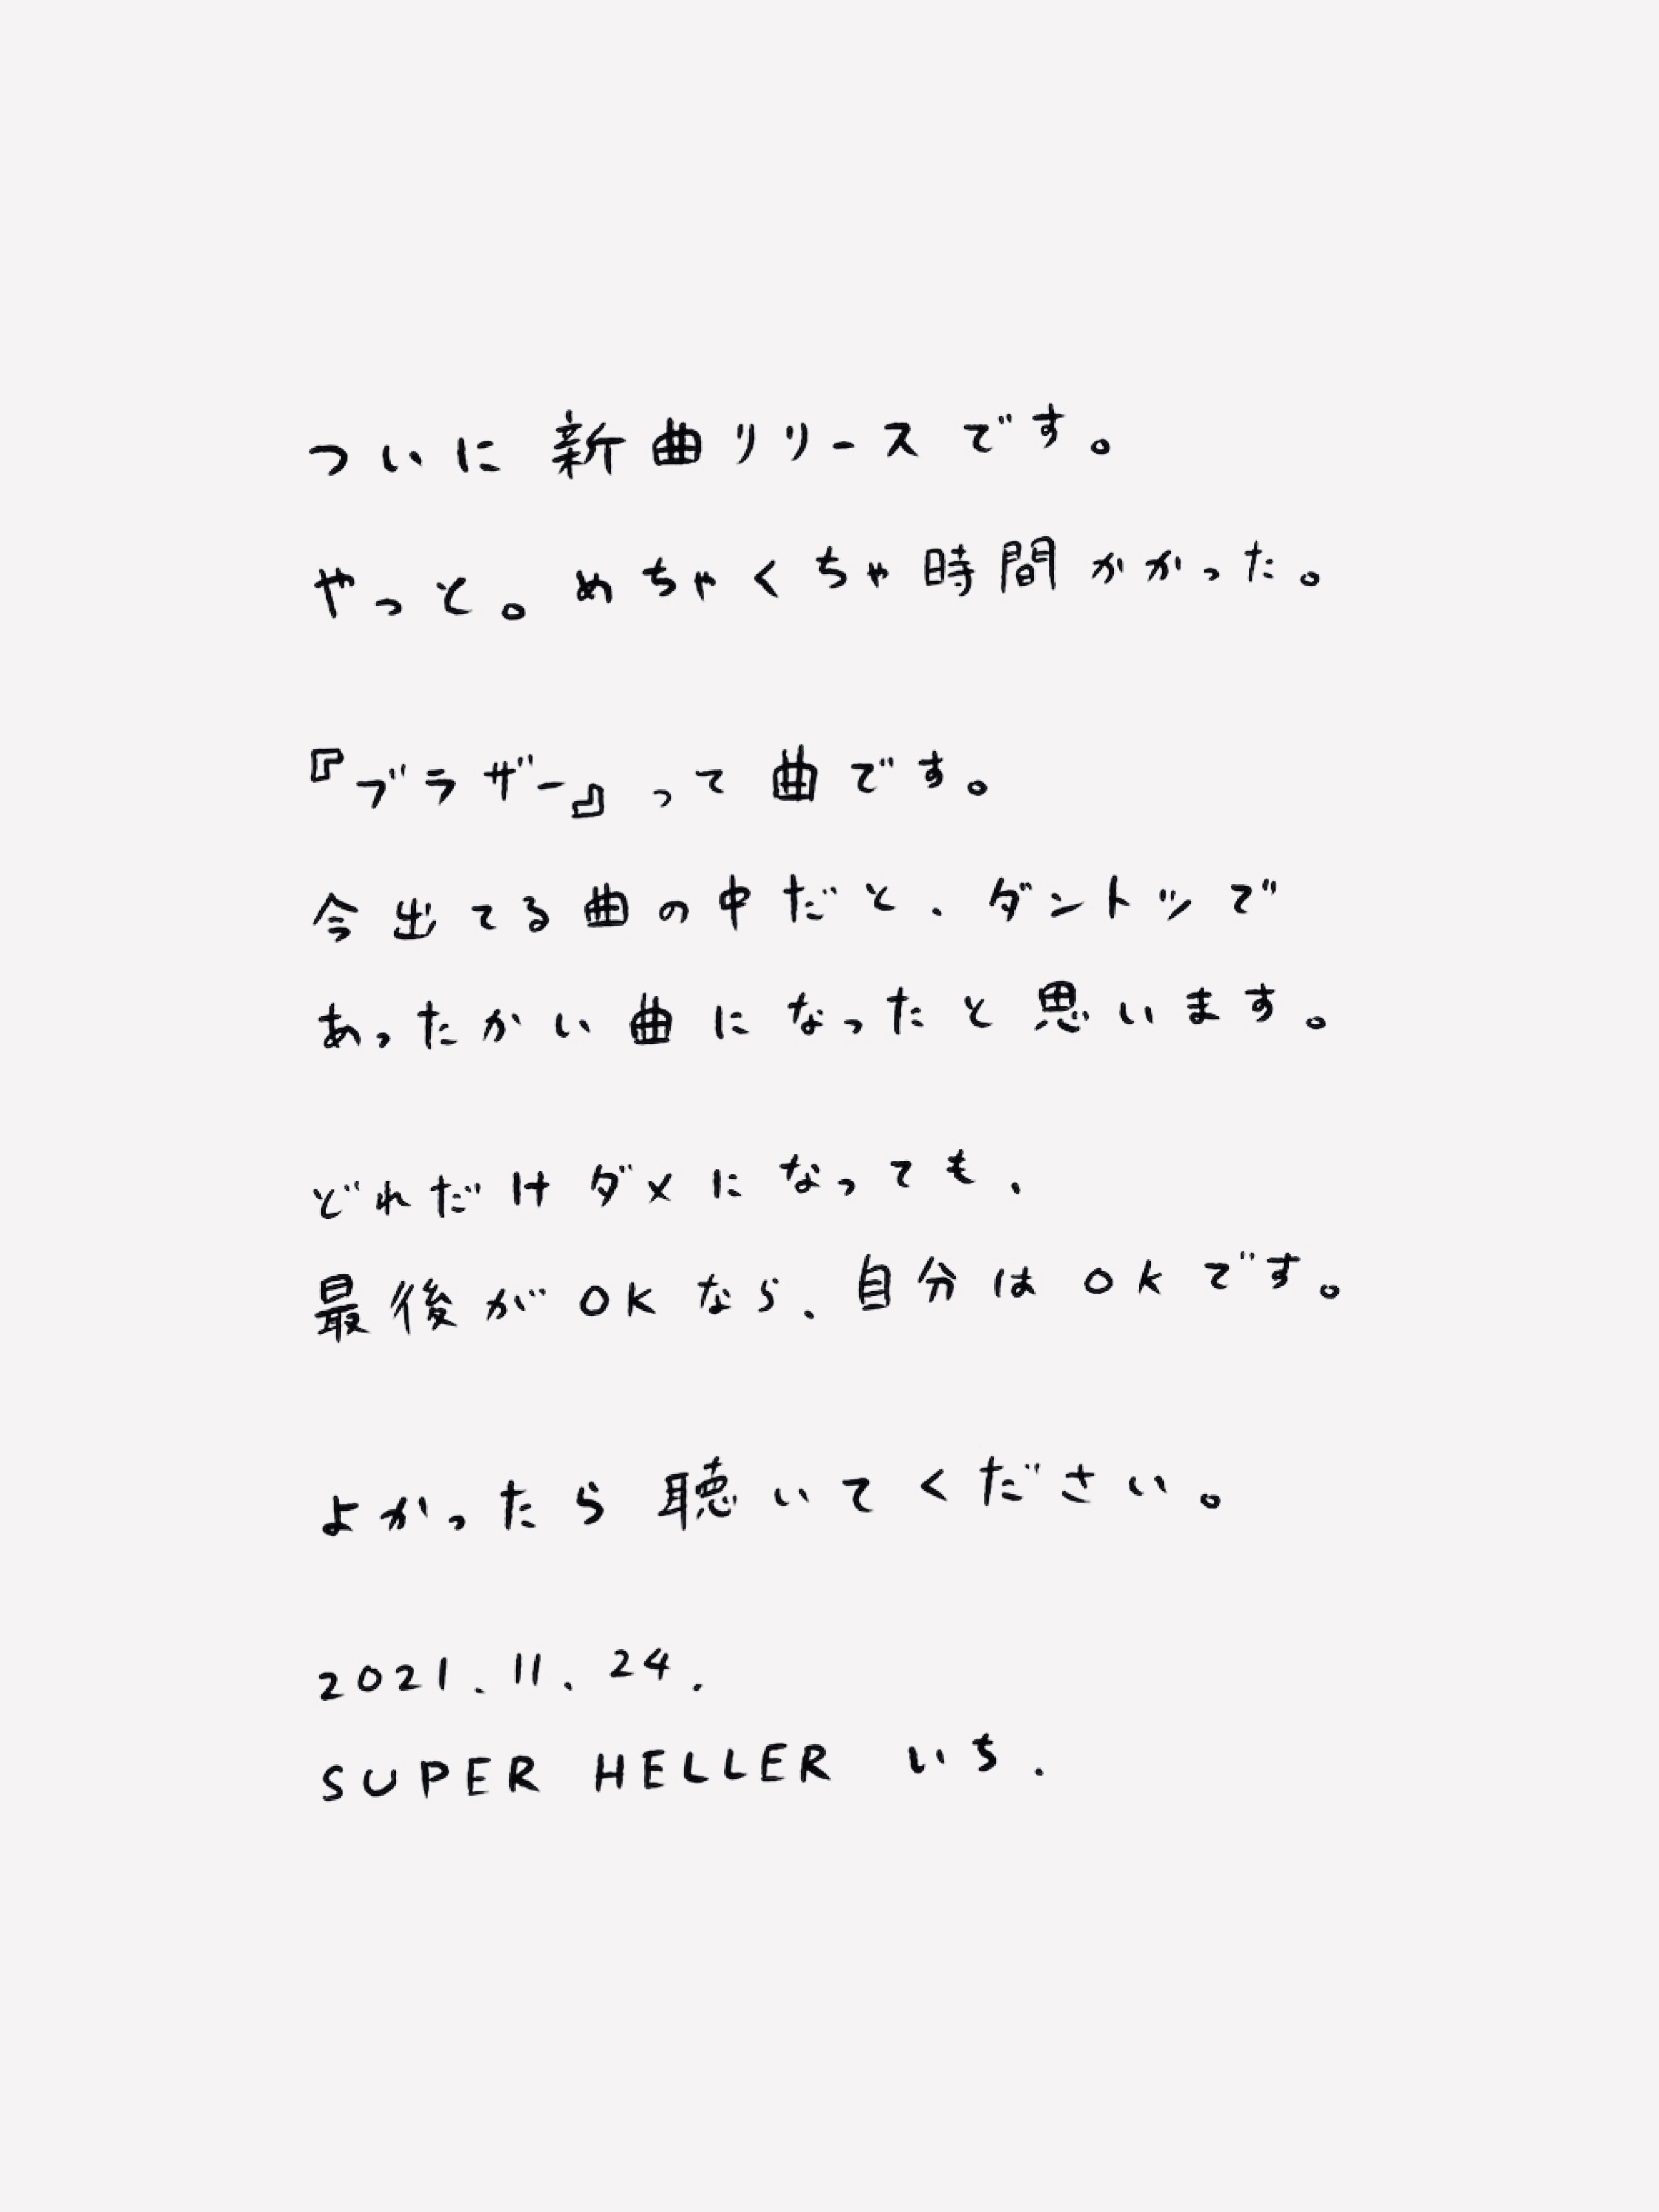 ついに新曲リリースです。
やっと。めちゃくちゃ時間かかった。
『ブラザー』って曲です。
今出てる曲の中だと、ダントツで
あったかい曲になったと思います。
どれだけダメになっても、
最後がOKなら、自分はOKです。
よかったら聴いてください。
2021.11.24.
SUPER HELLER いち.